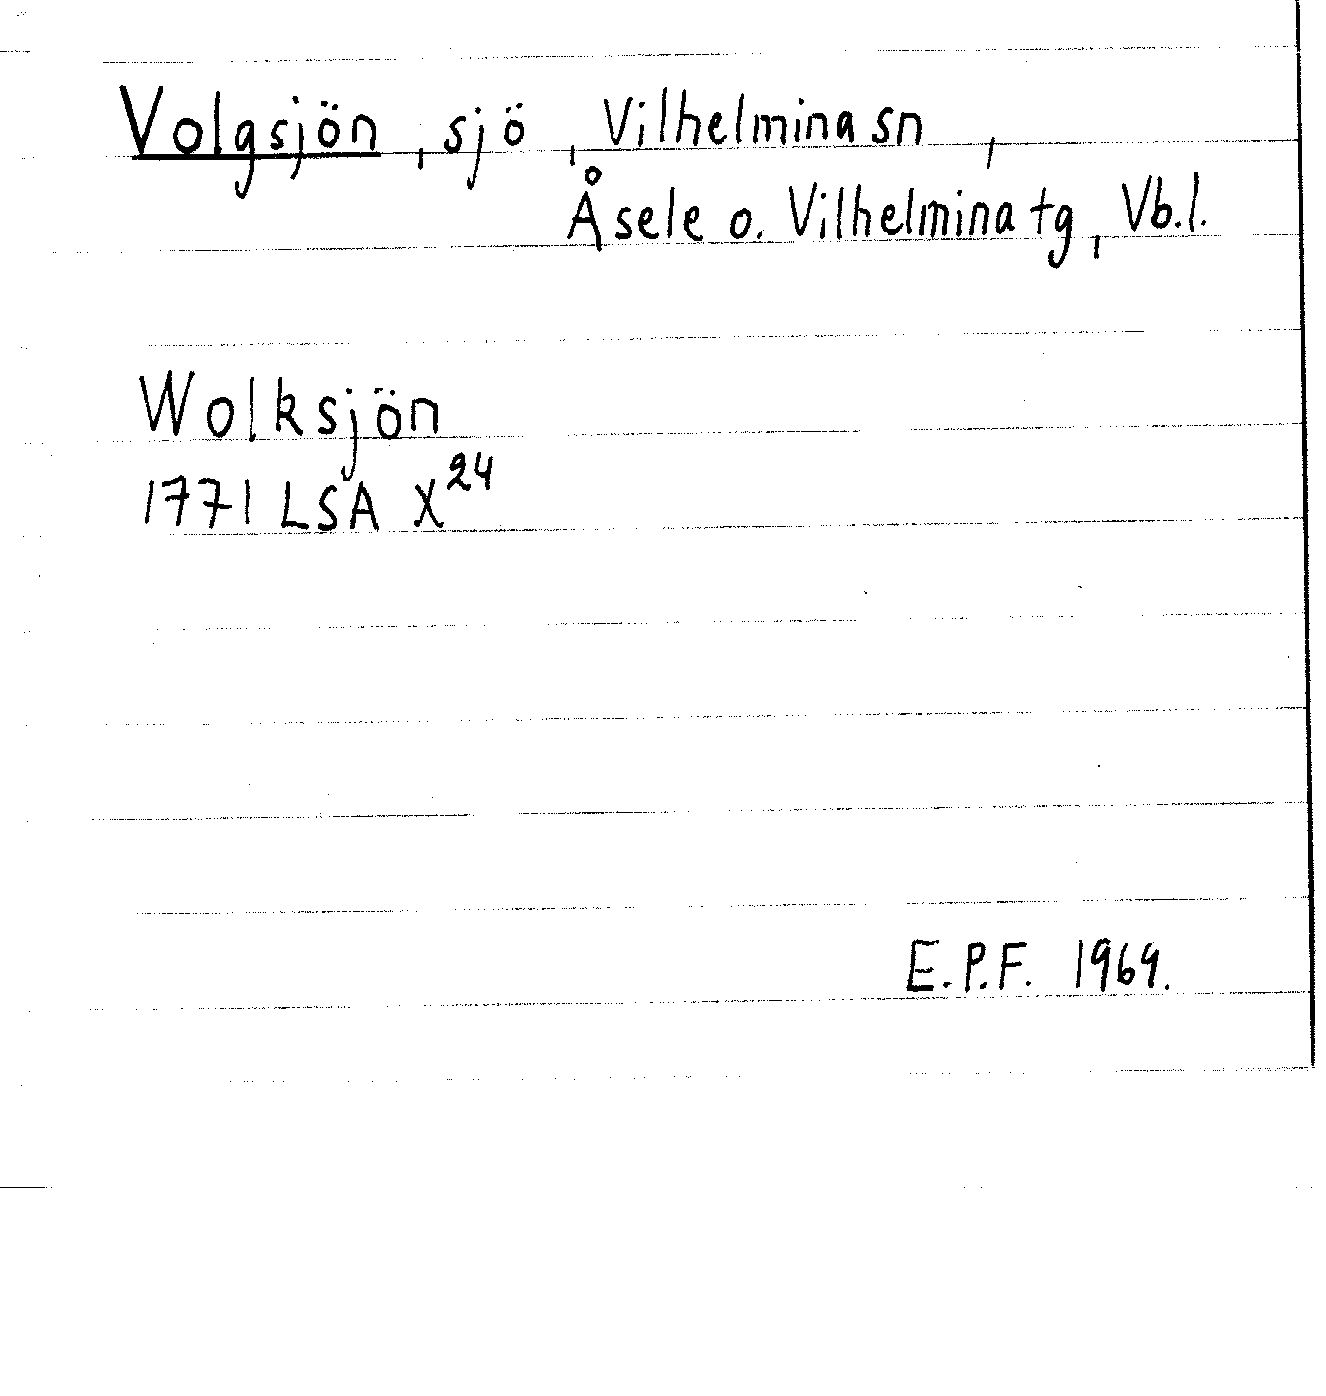 Volgsjön, sjö, Vilhelmina sn,
Åsele o. Vilhelmina tg, Vb.l.
Wolksjön
1771 LSA X24
E.P.F. 1969.